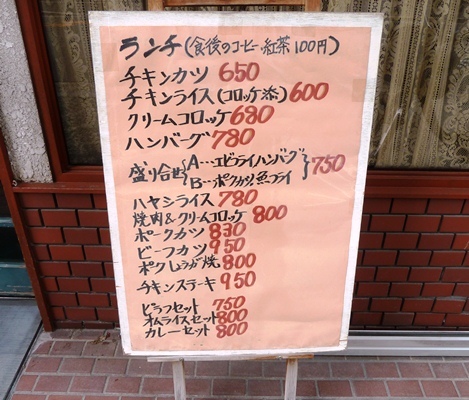 ランチ(食後のコーヒー・紅茶100円)
チキンカツ 650
チキンライス(コロッケ添) 600
クリームコロッケ 680
ハンバーグ 780
盛り合せ{A…エビフライハンバーグ
B…ポークカツ、魚フライ}750
ハヤシライス 780
焼肉&クリームコロッケ 800
ポークカツ 830
ビーフカツ 950
ポークしょうが焼 800
チキンステーキ 950
ピラフセット 750
オムライスセット 800
カレーセット 800